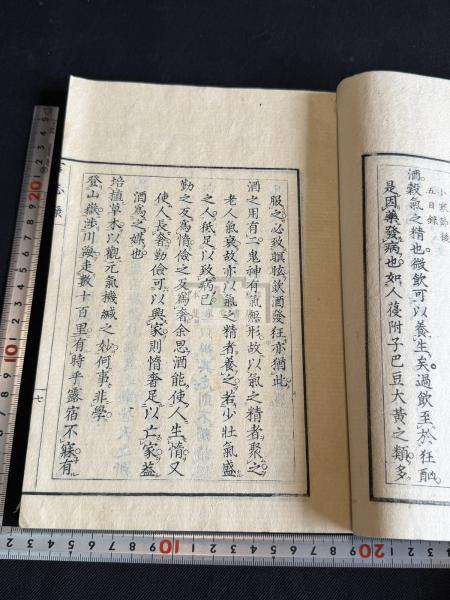 小寒節後
五日錄
酒穀氣之精也。微飲可以養生矣。過飲至於狂酗。
是因藥發病也。如人葠附子巴豆大黃之類。多
服之必致瞑眩。飲酒發狂。亦猶此
酒之用有二。鬼神有氣。無形。故以氣之精者聚之。
老人氣衰。故亦以氣之精者養之。若少壯氣盛
之人。秪足以致病已。
勤之反爲惰。儉之反爲奢。余思酒能使人生惰。又
使人長奢。勤儉可以興家。則惰奢足以亡家。蓋
酒爲之媒也。
培植草木。以觀元氣機緘之妙。何事非學。
登山嶽。涉川海。走數十百里。有時乎露宿不寢。有
七
20
10
10
20